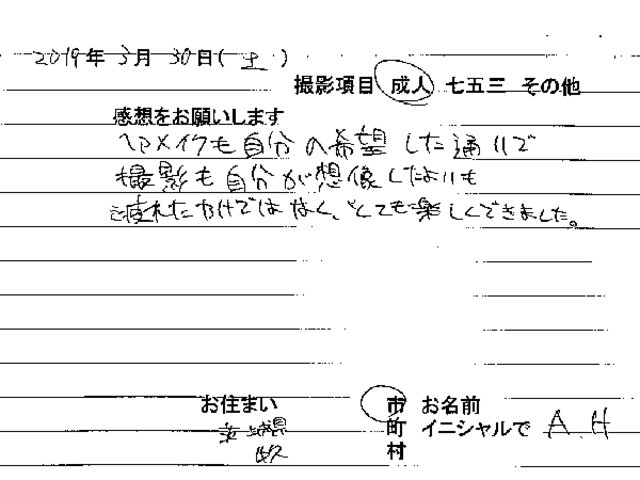 2019年 3月 30日(土)
撮影項目 成人 七五三 その他
感想をお願いします
ヘアメイクも自分の希望した通りで
撮影も自分が想像したよりも
疲れたわけではなく、とても楽しくできました。
お住まい 市 お名前
茨城県 町 イニシャルで A.H
村